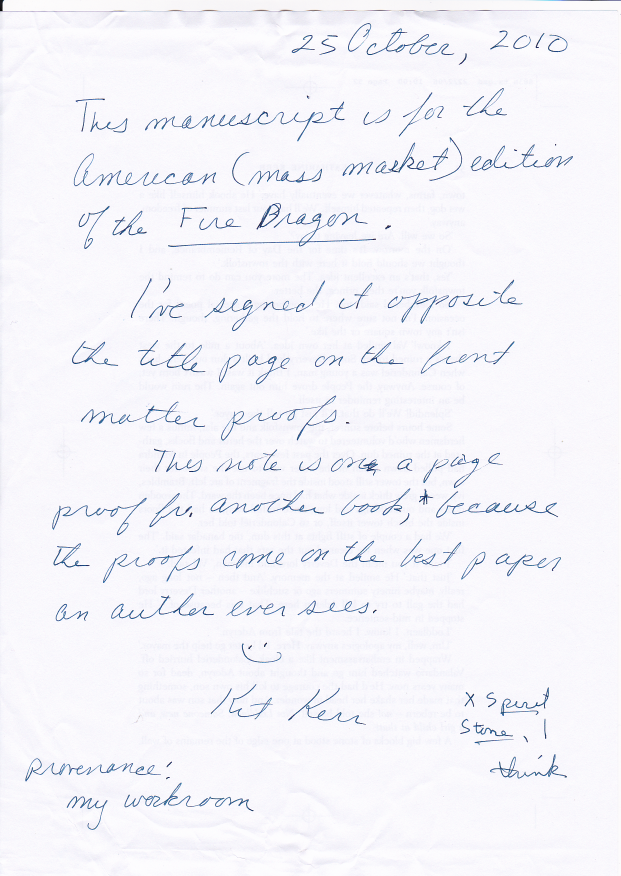 25 October, 2010
This manuscript is for the
American (mass market) edition
of the Fire Dragon.
I've signed it opposite
the title page on the front
matter proofs.
This note is on a page
proof fr. another book,* because
the proofs come on the best paper
an author ever sees.
Kit Kerr
x Spirit
Stone, I
think
provenance:
my workroom